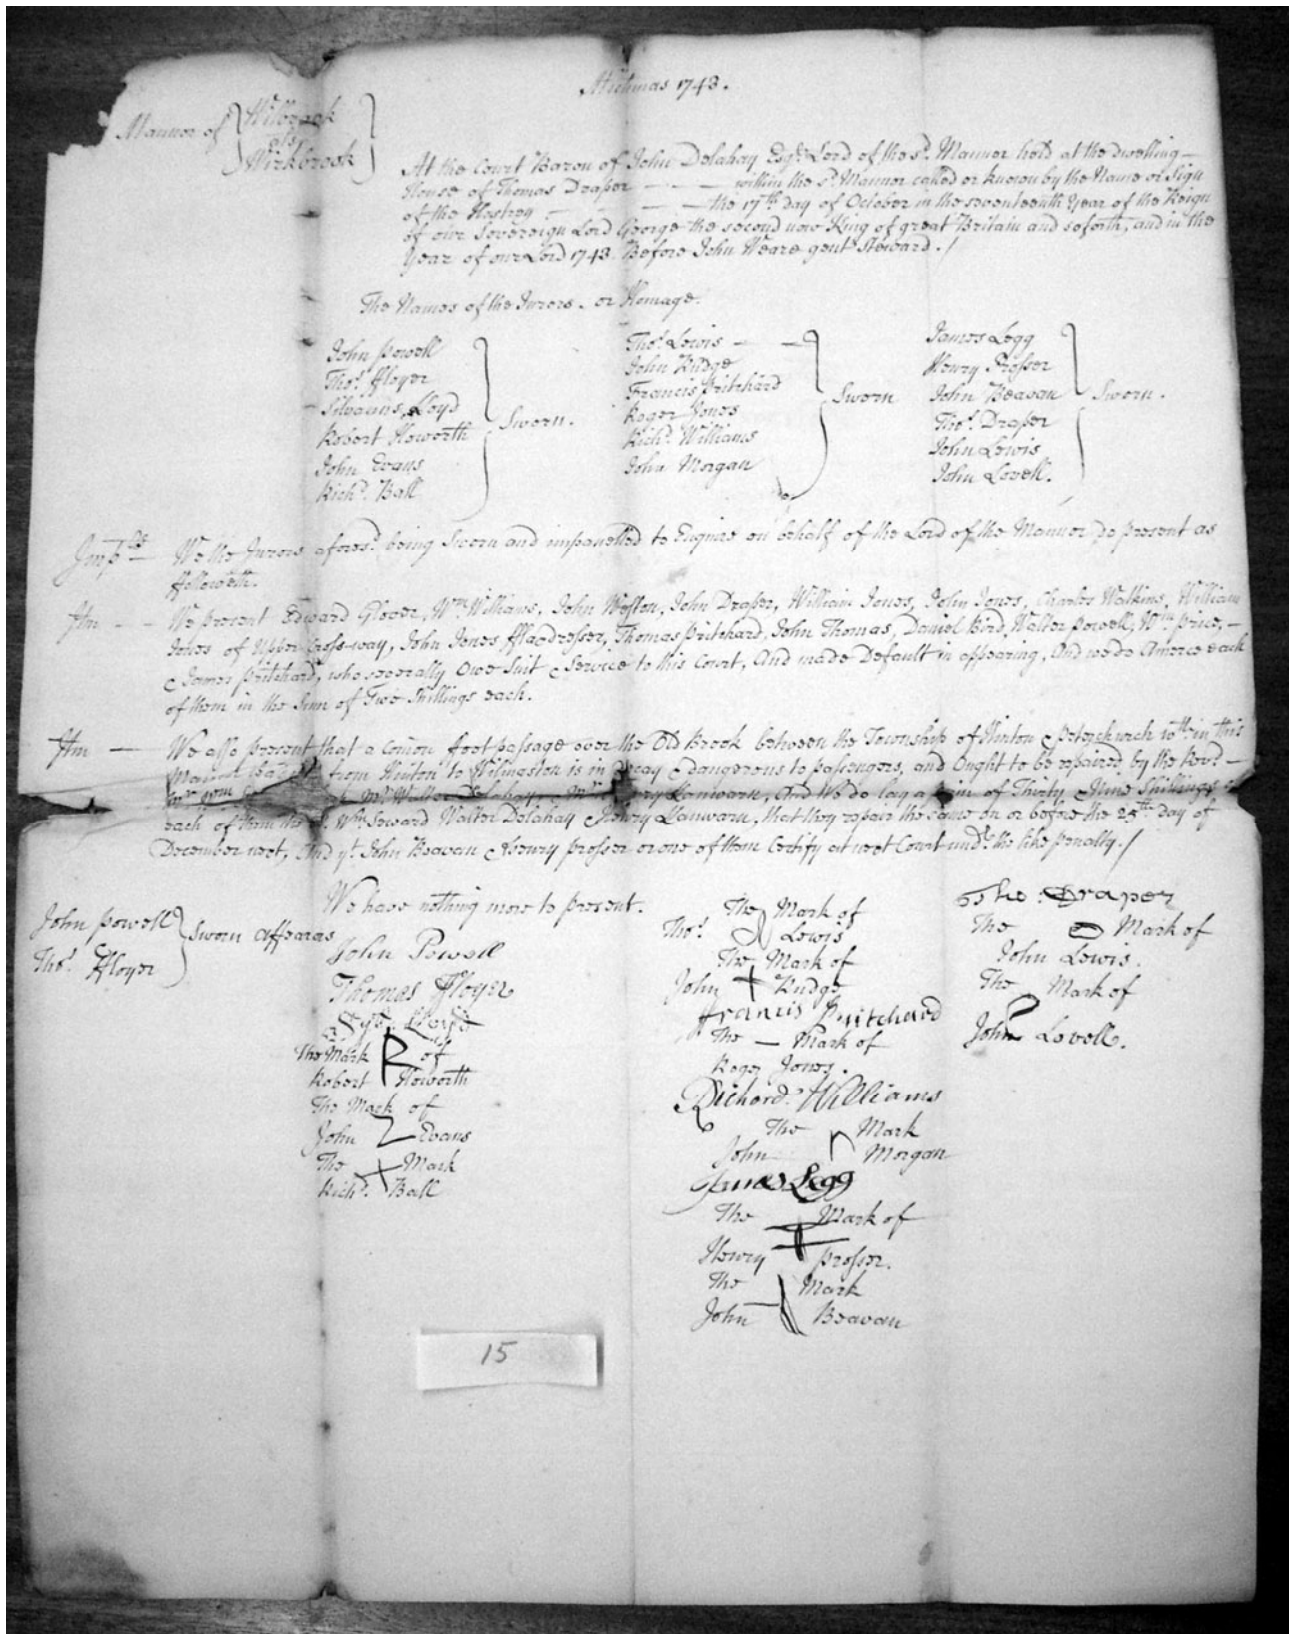 Michmas 1743.
Mannor of { Wilbrook
als
Wirkbrook }
At the Court Baron of John Delahay Esqr. Lord of the sd. Mannor held at the dwelling
House of Thomas Draper - - - within the sd. Mannor called or known by the Name or Sign
of the Hostrey - - - the 17th day of October in the seventeenth Year of the Reign
of our Sovereign Lord George the second now King of great Britain and soforth, and in the
Year of our Lord 1743. Before John Weare gent. Steward. /
The Names of the Jurors. or Homage.
John Powell
Thos. Ffloyer
Silvanus Lloyd
Robert Howorth
John Evans
Richd. Ball
Sworn.
Thos. Lewis - -
John Rudge
Francis Pritchard
Roger Jones
Richd. Williams
John Morgan
Sworn
James Legg
Henry Prosser
John Beavan
Thos. Draper
John Lewis
John Lovell.
Sworn.
Imps - We the Jurors aforesd. being Sworn and impanelled to Enquire on behalf of the Lord of the Mannor do present as
ffolloweth.
Itm - - We present Edward Glover, Wm. Williams, John Weston, John Draper, William Jones, John Jones, Charles Watkins, William
Jones of Upper Cross-way, John Jones fflaxdresser, Thomas Pritchard, John Thomas, Daniel Bird, Walter Powell, Wm. Price, -
& James Pritchard, who severally Owe Suit & Service to this Court, And made Default in appearing, And we do Amerce each
of them in the Sum of Two Shillings each.
Itm - We also present that a Comon foot passage over the Old Brook between the Township of Hinton & Peterchurch within this
Mannor from Hinton to Wilmaston is in Decay & dangerous to passengers, and Ought to be repaired by the Revd. -
Mr. Wm Mr. Walter Delahay Lanwarn, And We do lay a pain of Thirty Nine Shillings
each of them the sd. Wm. Seward Walter Delahay & Henry Lanwarn, that they repair the same on or before the 25th day of
December next, And yt. John Beavan & Henry Prosser or one of them Certify at next Court undr. the like penalty. /
We have nothing more to present.
John Powell
Thos. Ffloyer
Sworn Affearas
John Powell
Thomas Ffloyer
Syl: Lloyd
The Mark R of
Robert Howorth
The Mark of
John Evans
The X Mark
Richd. Ball
The Mark of
Thos. Lewis
The Mark of
John + Rudge
Francis Pritchard
The - Mark of
Roger Jones.
Richard Williams
The Mark
John Morgan
James Legg
The Mark of
Henry Prosser.
The Mark
John Beavan
Tho: Draper
The Mark of
John Lewis.
The Mark of
John Lovell.
15